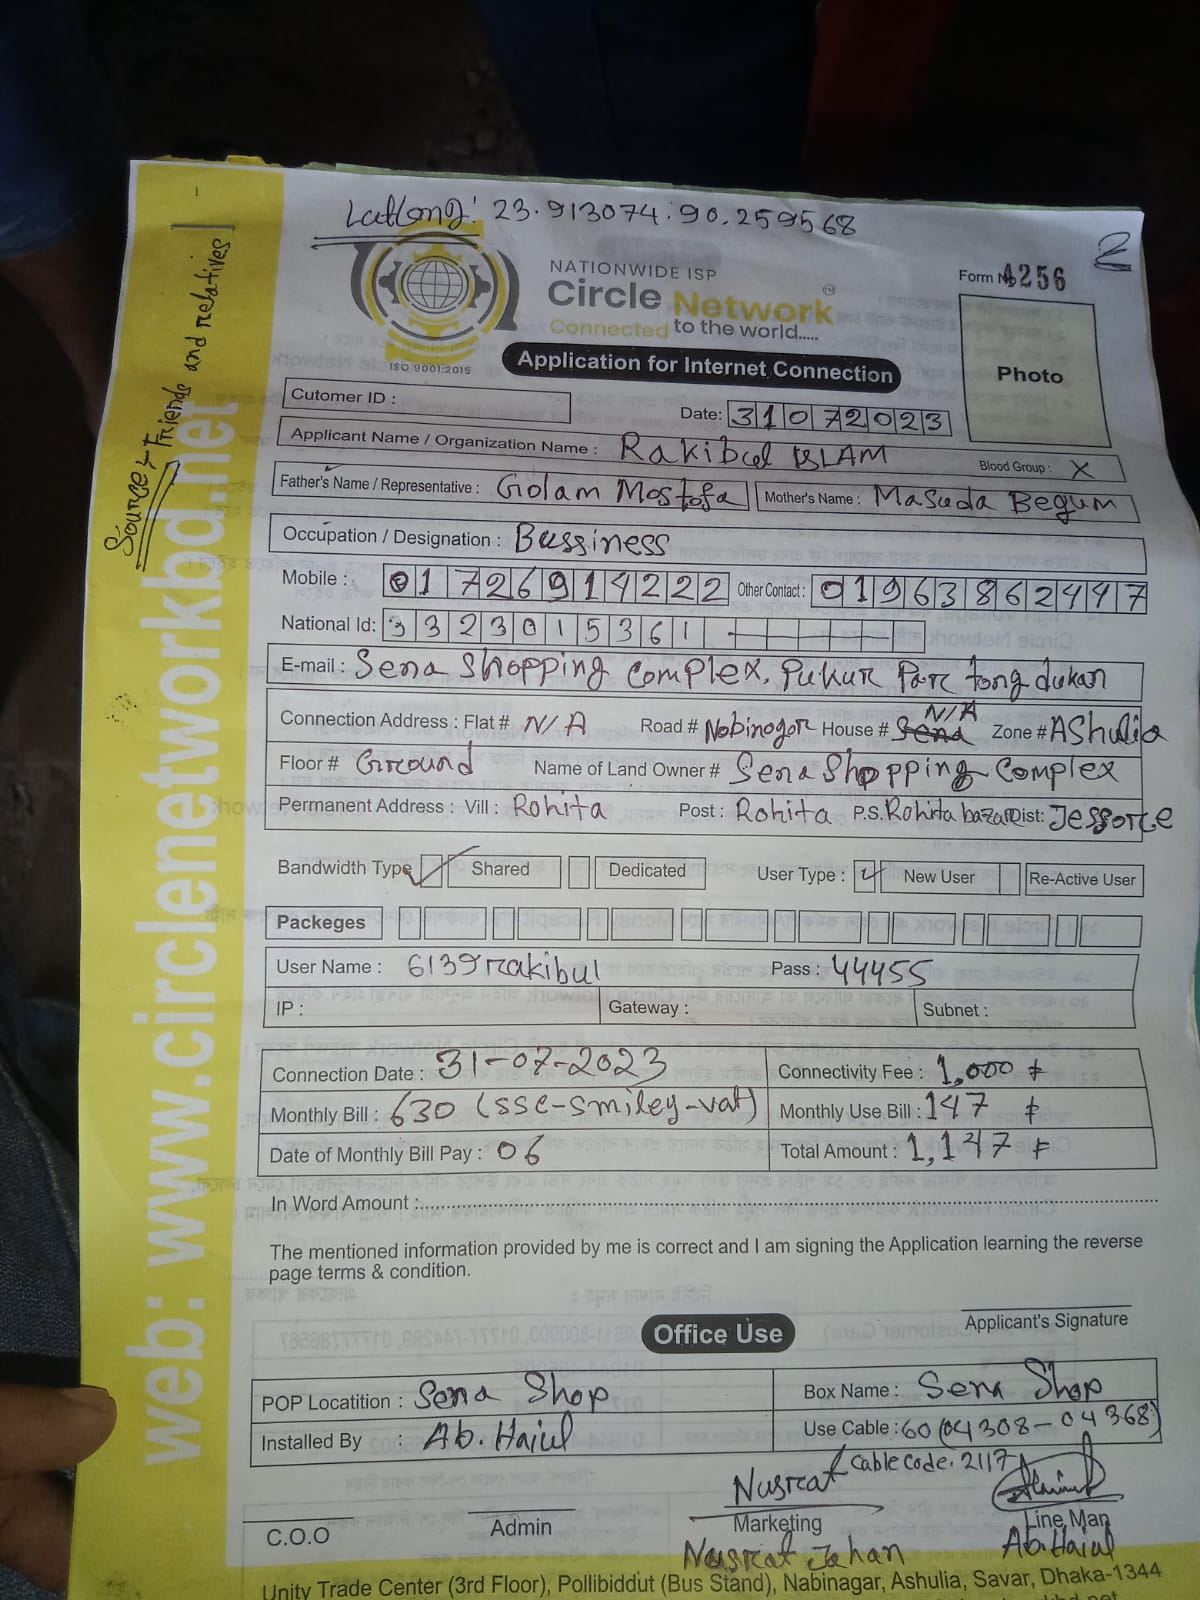 LatLong: 23.913074, 90.259568
2
NATIONWIDE ISP
Circle Network
Connected to the world.....
ISO 9001:2015
Form № 4256
Application for Internet Connection
Photo
Cutomer ID :
Date: 31072023
Applicant Name / Organization Name : Rakibul ISLAM
Blood Group : X
Father's Name / Representative : Golam Mostofa
Mother's Name : Masuda Begum
Occupation / Designation : Bussiness
Mobile : 01726914222 Other Contact : 01963862497
National Id: 3323015361
E-mail : Sena Shopping Complex, Pukur Par tong dukan
Connection Address : Flat # N/A Road # Nobinogor House # Sena N/A Zone # AShulia
Floor # Ground Name of Land Owner # Sena Shopping Complex
Permanent Address : Vill : Rohita Post : Rohita P.S. Rohita bazar Dist: Jessore
Bandwidth Type Shared Dedicated User Type : New User Re-Active User
Packeges
User Name : 6139rakibul Pass : 44455
IP : Gateway : Subnet :
Connection Date : 31-07-2023 Connectivity Fee : 1,000 ৳
Monthly Bill : 630 (sse-smiley-vat) Monthly Use Bill : 147 ৳
Date of Monthly Bill Pay : 06 Total Amount : 1,147 ৳
In Word Amount :
The mentioned information provided by me is correct and I am signing the Application learning the reverse
page terms & condition.
Applicant's Signature
Office Use
POP Locatition : Sena Shop Box Name : Sena Shop
Installed By : Ab. Hajul Use Cable : 60 (04308-04368)
Cable code: 2117
Nusrat
C.O.O Admin Marketing Line Man
Nusrat Jahan Ab. Hajul
Unity Trade Center (3rd Floor), Pollibiddut (Bus Stand), Nabinagar, Ashulia, Savar, Dhaka-1344
web: www.circlenetworkbd.net
Source:- Friends and relatives